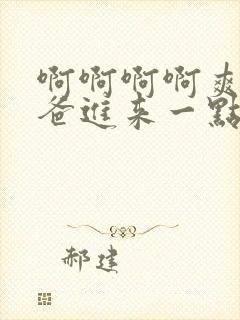 啊啊啊啊爽
爸進来一點
郝建